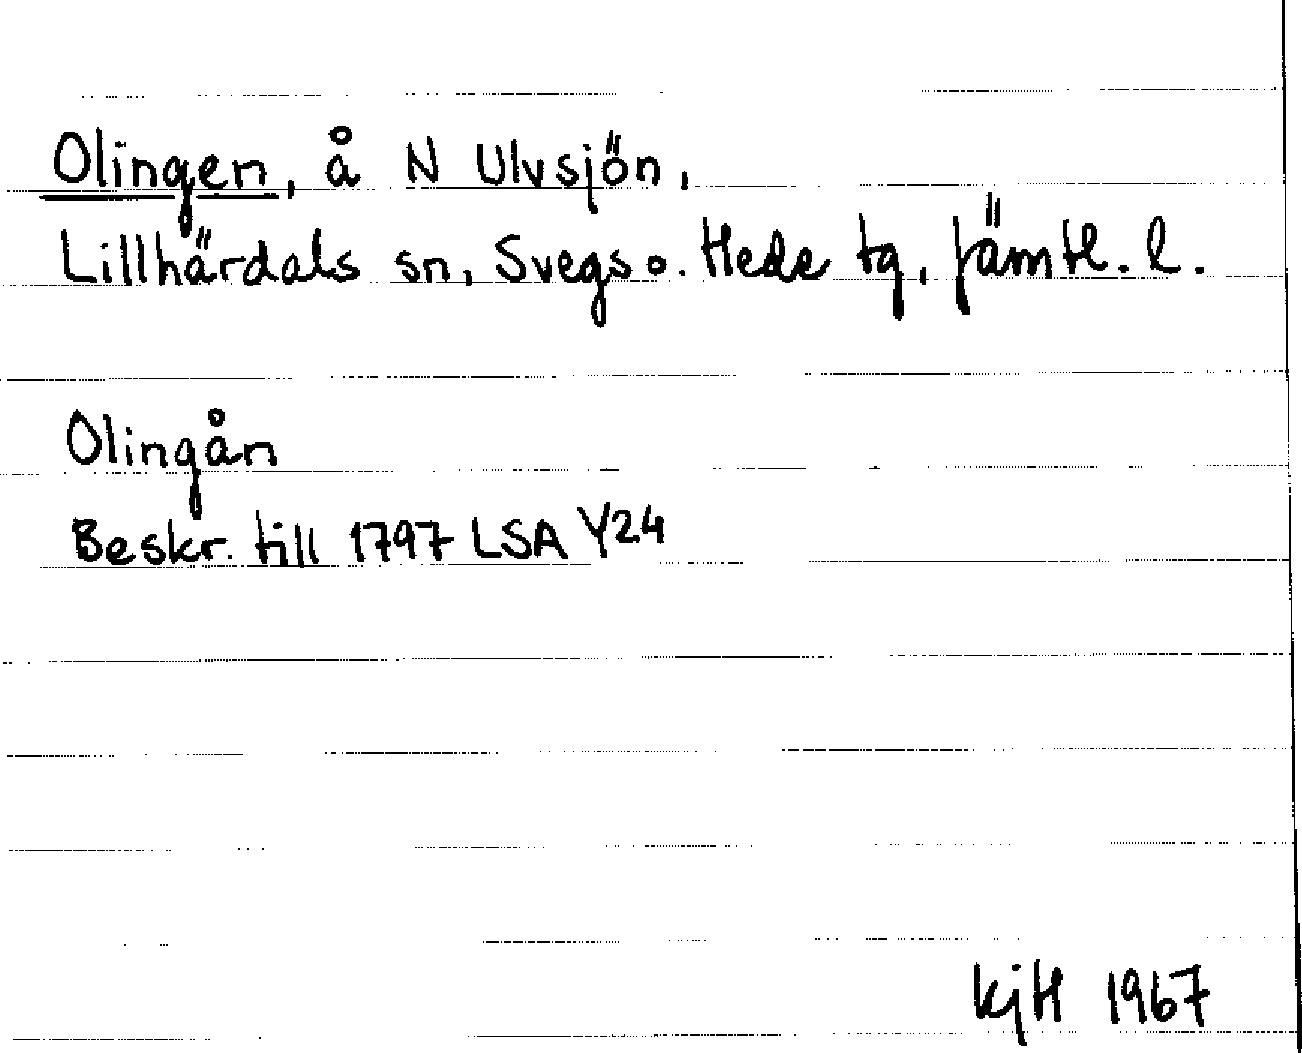 Olingen, å N Ulvsjön,
Lillhärdals sn, Svegs o. Hede tg, Jämtl. l.
Olingån
Beskr. till 1797 LSA Y24
KjH 1967